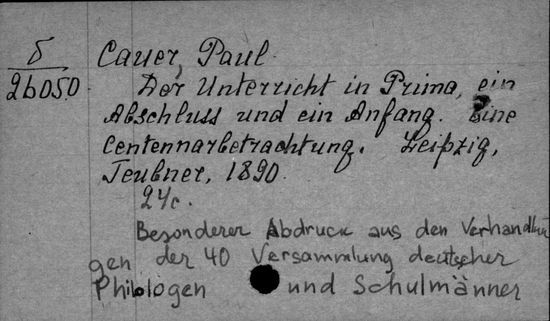 δ
26050
Cauer, Paul.
Der Unterricht in Prima, ein
Abschluss und ein Anfang. Eine
Centennarbetrachtung. Leipzig,
Teubner, 1890.
24c.
Besonderer Abdruck aus den Verhandlun
gen der 40 Versammlung deutscher
Philologen und Schulmänner